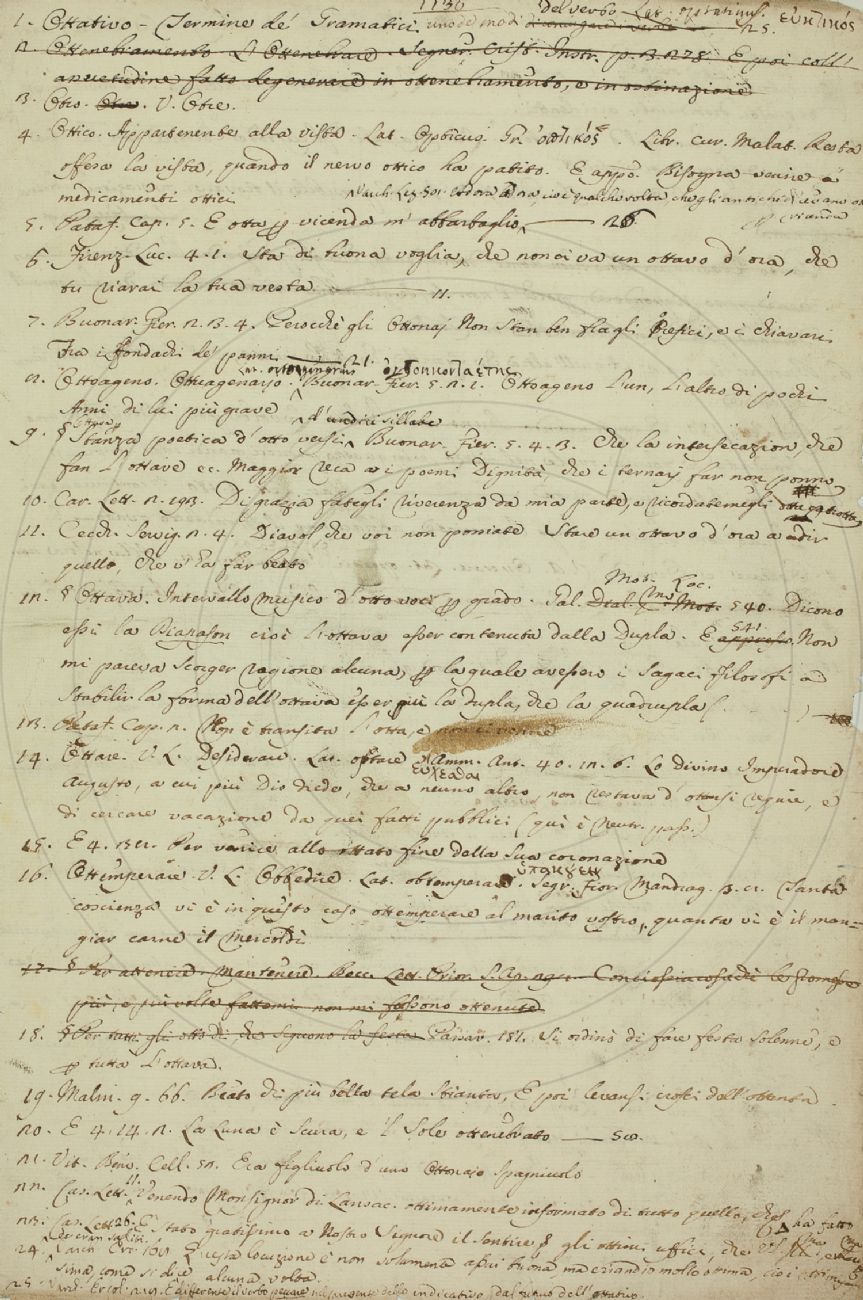 1136
1. Ottativo - Termine de' Gramatici. uno de modi del verbo Lat. optativus. εὐκτικός
2. Ottenebramento. L'Ottenebrare. Segner. Crist. Instr. p. 3. 278. E poi coll'
fatto degenerare in ottenebramento, e in ostinazione
3. Otro. V. Otre.
4. Ottico. Appartenente alla vista. Lat. Opticus. Gr. ὀπτικός. Libr. cur. Malat. Resta
offesa la vista, quando il nervo ottico ha patito. E appo. Bisogna venire a
medicamenti ottici
5. Pataf. Cap. 5. E otta vicenda m'abbarbaglio, — 26
6. Firenz. Luc. 4. 1. Sta di buona voglia, che non ci va un ottavo d'ora, che
tu riarai la tua vesta 11.
7. Buonar. Fier. 2. 3. 4. Perocchè gli Ottonaj Non stan ben fra gli Orefici, e i chiavari
Fra i fondachi de' panni — 21.
8. Ottoageno. Ottuagenario. Buonar. Fier. 5. 2. 1. Ottoageno L'un, L'altro di pochi
Anni di lui più grave
9. § Stanza poetica d'otto versi d'undici sillabe Buonar. Fier. 5. 4. 3. Che la intersecazion, che
fan L'ottave ec. Maggior reca a i poemi Dignità, che i ternarj far non ponno
10. Car. Lett. 2. 193. Di grazia fategli riverenza da mia parte, e ricordatemegli
11. Cecch. Servig. 2. 4. Diavol che voi non poniate Stare un ottavo d'ora a udir
quello, che v'ha far beato
12. § Ottava. Intervallo musico d'otto voci grado. Gal. Mot. Loc. 540. Dicono
essi la Diapason cioè L'ottava esser contenuta dalla Dupla. E 541. Non
mi pareva scorger ragione alcuna, la quale avessero i sagaci filosofi a
stabilir la forma dell'ottava esser più la dupla, che la quadrupla
13. Pataf. Cap. 2. Non è transita L'otta, e non ci venne
14. Ottare. V. L. Desiderare. Lat. optare Amm. Ant. 40. 12. 6. Lo Divino Imperadore
Augusto, a cui più Dio diede, che a neuno altro, non restava d'ottarsi requie, e
di cercare vacazione da quei fatti pubblici (qui è neutr. pass.)
15. E 4. Per venire allo ottato fine della sua coronazione
16. Ottemperare. V. L. Obbedire. Lat. obtemperare. ὑπακούειν Segr. Fior. Mandrag. 3. 11. Tanta
coscienza vi è in questo caso ottemperare al marito vostro, quanta vi è il man=
giar carne il Mercoldì
17. § Per attenere. Mantenere. Bocc. Lett. Prior. S. Ap. Conciossiacosachè le promesse
più, e più volte fattomi non mi fossono ottenute
18. § Per tutti gli otto dì, che seguono la festa. Si ordinò di fare festa solenne, e
tutta L'ottava.
19. Malm. 9. 66. Beato chi più bella tela E poi levansi dall'ottenta
20. E 4. 14. 2. La Luna è scura, e 'l Sole ottenebrato
21. Vit. Benv. Cell. 52. Era figliuolo d'uno Ottonajo Spagniuolo
22. Car. Lett. 11. Venendo Monsignor di Lansac. ottimamente informato di tutto quello, ha fatto
23. Car. Lett. 26. È stato gratissimo a Nostro Signore il sentire gli ottimi uffici, che
24. Varch. Ercol. questa locuzione è non solamente assai buona, ma eziandio molto ottima, cioè
come si dice alcuna volta.
25. Varch. Ercol. 219. È differente il verbo nel presente dello indicativo, dal futuro dell'ottativo.